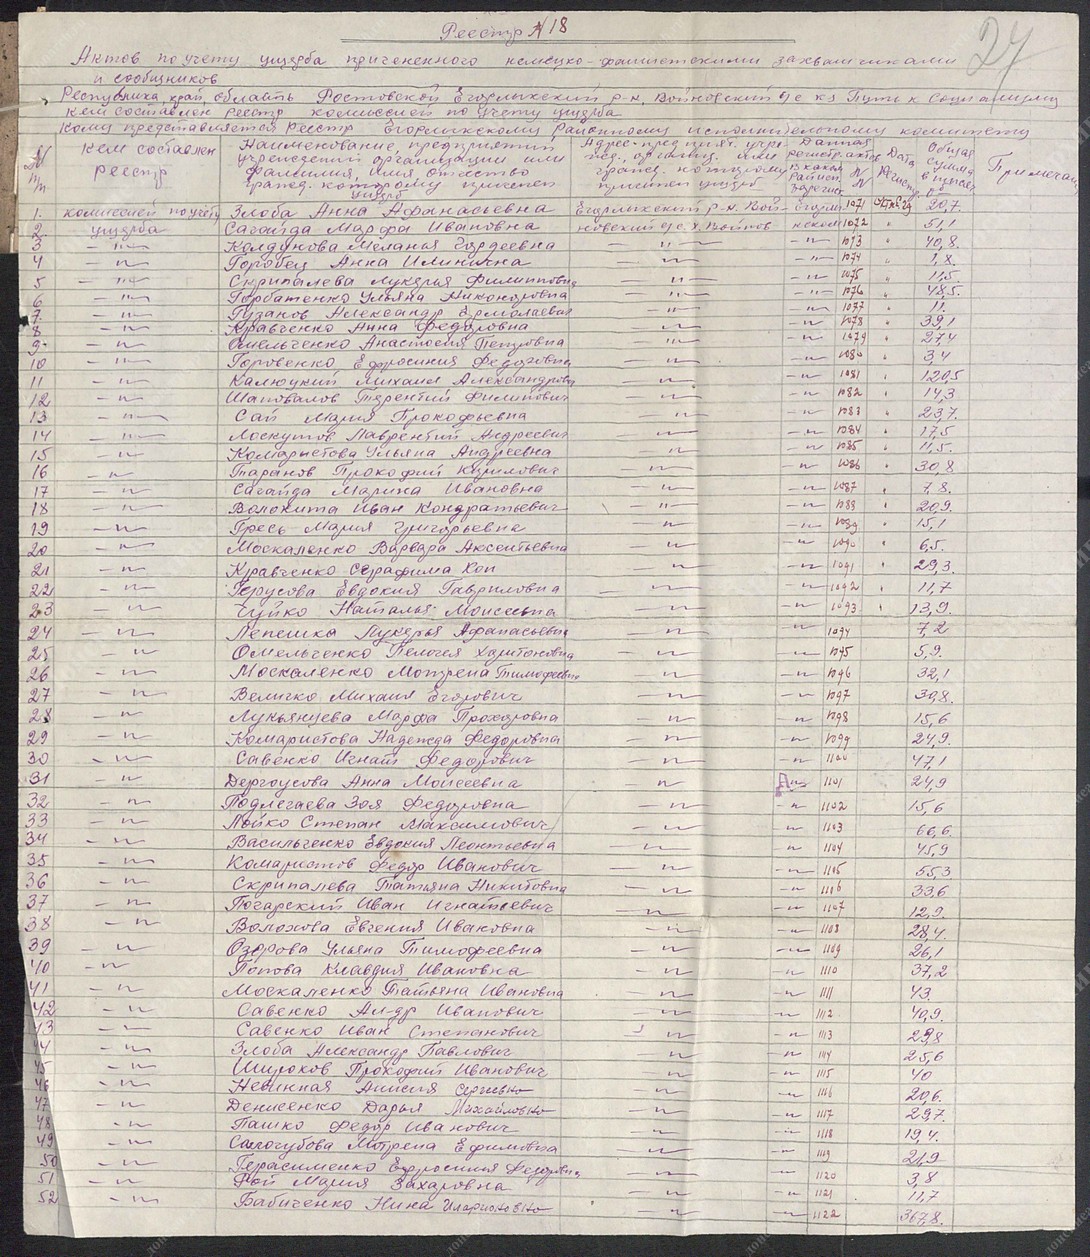 27
Реестр №18
Актов по учету ущерба причененного немецко-фашистскими захватчиками
и сообщников
Республика, край, область Ростовской Егорлыкский р-н, Войновский с/с к/з Путь к Социализму
Кем составлен реестр комиссией по учету ущерба
Кому представляется Реестр Егорлыкскому Районному исполнительному комитету
Кем составлен Реестр Наименование предприятий учреждений организации или фамилия, имя, отчество гражд. которому причинен ущерб Адрес Дата Общая сумма Примечан
1. комиссией по учету Злоба Анна Афанасьевна Егорлыкский р-н. Вой- 1071 20,7.
2. ущерба Сагайда Марфа Ивановна новский с/с 1072 51,1
3 –"– Колдунова Меланья Гордеевна –"– –"– 1073 40,8.
4 –"– Горобец Анна Илинична –"– –"– 1074 1,8.
5 –"– Скрипалева Лукерья Филипповна –"– –"– 1075 11,5
6 –"– Горбатенко Ульяна Никоноровна –"– –"– 1076 48,5.
7. –"– Гузанов Александр Ермолаевич –"– –"– 1077 11.
8 –"– Кравченко Анна Федоровна –"– –"– 1078 39,1
9 –"– Омельченко Анастасия Петровна –"– –"– 1079 27,4
10 –"– Горовенко Ефросиния Федоровна –"– –"– 1080 3,4
11 –"– Калюцкий Михаил Александрович –"– –"– 1081 120,5
12 –"– Шаповалов Терентий Филипович –"– –"– 1082 14,3
13 –"– Сай Мария Прокофьевна –"– –"– 1083 23,7.
14 –"– Лоскутов Лаврентий Андреевич –"– –"– 1084 17,5
15 –"– Ульяна Андреевна –"– –"– 1085 11,5.
16 –"– Таранов Прокофий Кирилович –"– –"– 1086 30,8
17 –"– Сагайда Марина Ивановна –"– –"– 1087 7,8.
18 –"– Волокита Иван Кондратьевич –"– –"– 1088 20,9.
19 –"– Гресь Мария Григорьевна –"– –"– 1089 15,1
20 –"– Москаленко Варвара Аксентьевна –"– –"– 1090 6,5.
21 –"– Кравченко Серафима –"– –"– 1091 29,3.
22 –"– Герусова Евдокия Гавриловна –"– –"– 1092 11,7
23 –"– Чуйко Наталья Моисеевна –"– –"– 1093 13,9.
24 –"– Лепешка Лукерья Афанасьевна –"– –"– 1094 7,2
25 –"– Омельченко Пелогея Харитоновна –"– –"– 1095 5,9.
26 –"– Москаленко Мотрена Тимофеевна –"– –"– 1096 32,1
27 –"– Величко Михаил Егорович –"– –"– 1097 30,8.
28 –"– Лукьянцева Марфа Прохоровна –"– –"– 1098 15,6
29 –"– Комаристова Надежда Федоровна –"– –"– 1099 24,9.
30 –"– Савенко Игнат Федорович –"– –"– 1100 47,1
31 –"– Дергоусова Анна Моисеевна –"– –"– 1101 24,9
32 –"– Подлегаева Зоя Федоровна –"– –"– 1102 15,6
33 –"– Лойко Степан Максимович –"– –"– 1103 66,6.
34 –"– Васильченко Евдокия Леонтьевна –"– –"– 1104 45,9
35 –"– Комаристов Федор Иванович –"– –"– 1105 55,3
36 –"– Скрипалева Татьяна Никитовна –"– –"– 1106 33,6
37 –"– Погарский Иван Игнатьевич –"– –"– 1107 12,9.
38 –"– Волохова Евгения Ивановна –"– –"– 1108 28,4.
39 –"– Озерова Ульяна Тимофеевна –"– –"– 1109 26,1
40 –"– Попова Клавдия Ивановна –"– –"– 1110 37,2
41 –"– Москаленко Татьяна Ивановна –"– –"– 1111 43.
42 –"– Савенко Ал-др Иванович –"– –"– 1112 40,9.
43 –"– Савенко Иван Степанович –"– –"– 1113 29,8
44 –"– Злоба Александр Павлович –"– –"– 1114 25,6
45 –"– Широков Прокофий Иванович –"– –"– 1115 40
46 –"– Невинная Анисия Сергеевна –"– –"– 1116 20,6.
47 –"– Денисенко Дарья Михайловна –"– –"– 1117 29,7.
48 –"– Пашко Федор Иванович –"– –"– 1118 19,4.
49 –"– Саллогубова Мотрена Ефимовна –"– –"– 1119 21,9
50 –"– Герасименко Ефросиния Федоровна –"– –"– 1120 3,8
51 –"– Мария Захаровна –"– –"– 1121 11,7
52 –"– Бабиченко Нина Иларионовна –"– –"– 1122 367,8.